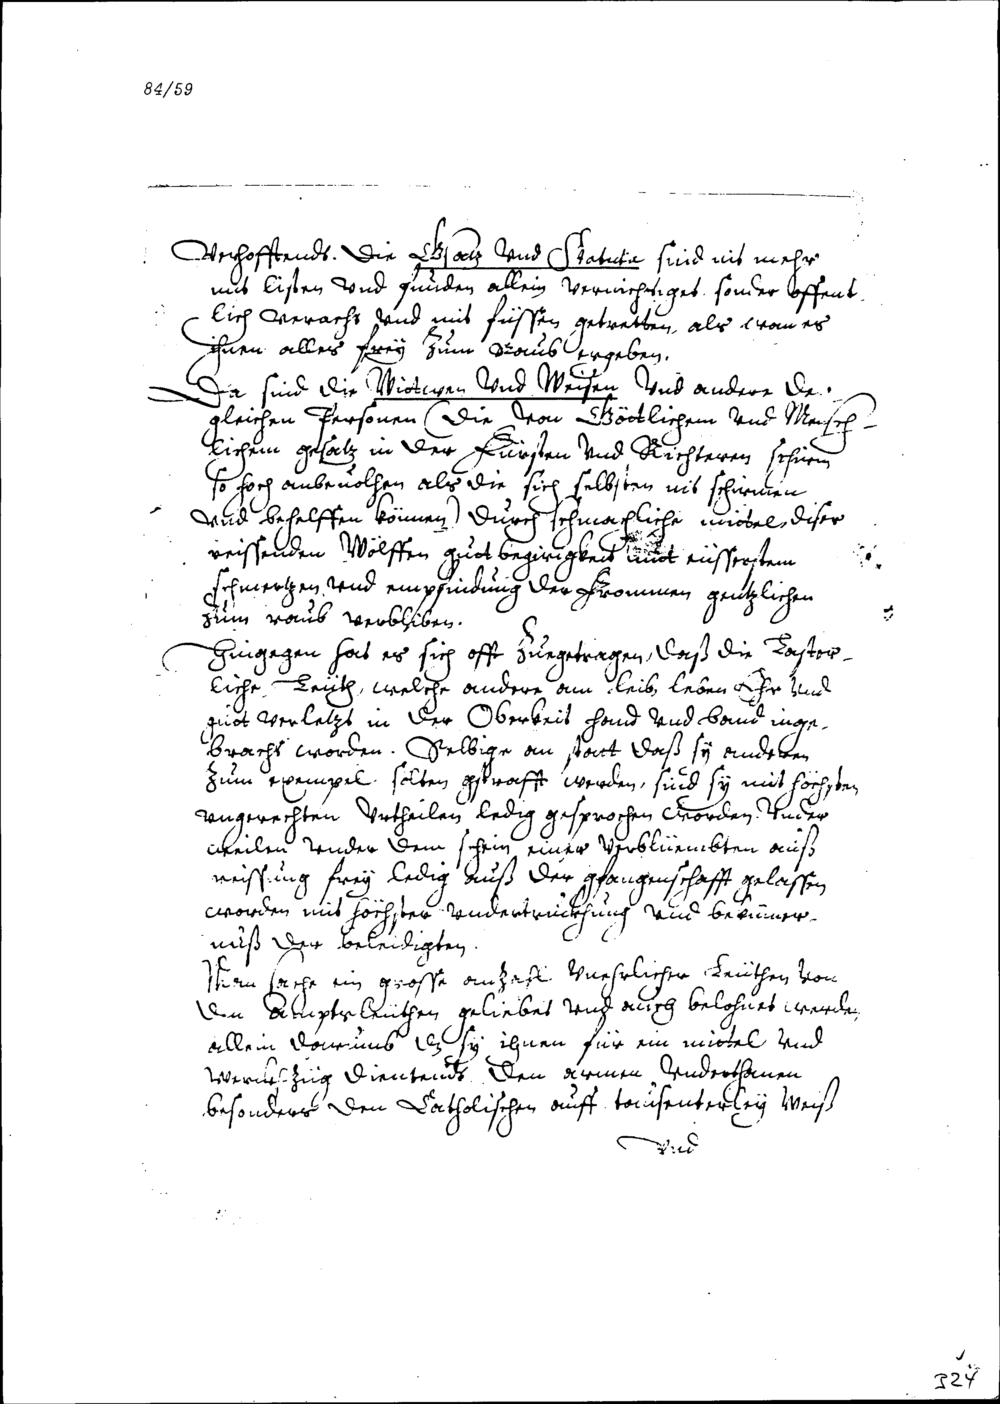 84/59
Verhofftends. Die Gsatz Vnd Statuta sind nit mehr
mit listen Vnd fünden allein vernichtiget sonder offent
lich veracht Vnd mit füssen getretten, als wan es
ihnen alles frey zum Raub ergeben.
Da sind die Witwen Vnd Weisen Vnd andere der
gleichen Personen (Die von Göttlichem Vnd Mensch-
lichem gesatz in der Fürsten Vnd Richteren schirm
so hoch anbeuolhen als die sich selbsten nit schirmen
Vnd behelffen können) Durch schmachliche mittel, diser
reissenden Wölffen gut begirigkeit mit eüsserstem
schmertzen Vnd empfindung der Frommen gentzlichen
zum raub verbliben.
Hingegen hat es sich offt zugetragen, daß die Laster-
liche Leüth, welche andere am leib, leben Ehr Vnd
gut verletzt in der Oberkeit hand Vnd band inge-
bracht worden. Selbige an statt daß sy anderen
zum exempel solten gstrafft werden, sind sy mit höchsten
vngerechten Vrtheilen ledig gesprochen worden. Vnder
weilen vnder dem schein einer Verblüembten auß
reissung frey ledig auß der gfangenschafft gelassen
worden mit höchster vndertruckhung Vnd bekümer-
nuß der beleidigten.
Man sache ein grosse anzahl Vnehrlicher Leüthen von
den Amptsleüthen geliebet Vnd auch belohnet werde,
allein darumb dz sy ihnen für ein mittel Vnd
werckzüg dientends den armen Vnderthanen
besonders den Catholischen auff tausenterley Weiß
Vnd
324